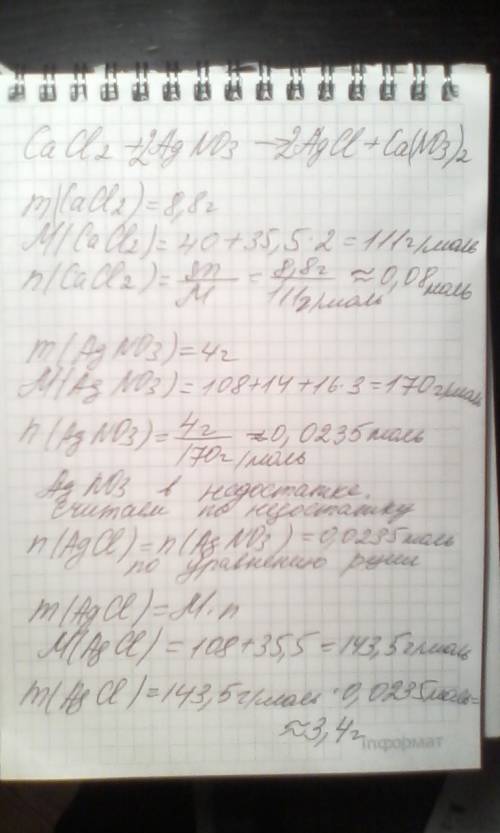 CaCl2 + 2AgNO3 → 2AgCl + Ca(NO3)2
m(CaCl2) = 8,8г
M(CaCl2) = 40 + 35,5 · 2 = 111г/моль
n(CaCl2) = m/M = 8,8г/111г/моль ≈ 0,08 моль
m(AgNO3) = 4г
M(AgNO3) = 108+14+16·3 = 170г/моль
n(AgNO3) = 4г/170г/моль ≈ 0,0235 моль
AgNO3 в недостатке.
Считаем по недостатку
n(AgCl) = n(AgNO3) = 0,0235 моль
по уравнению р-ции
m(AgCl) = M · n
M(AgCl) = 108 + 35,5 = 143,5г/моль
m(AgCl) = 143,5г/моль · 0,0235 моль =
≈ 3,4г
Информат